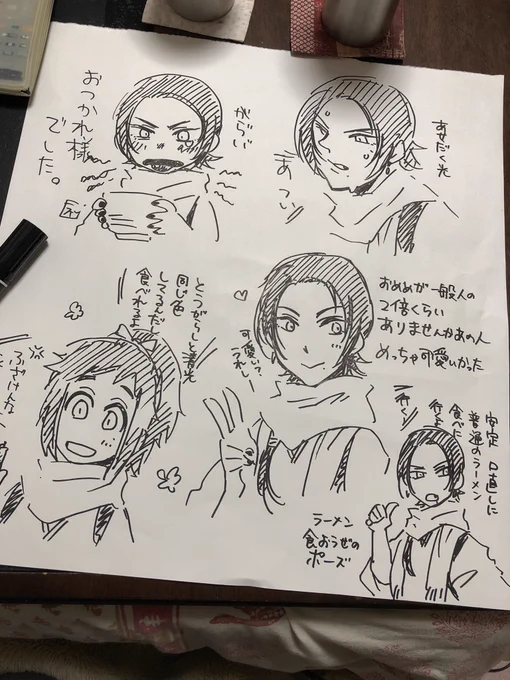 おつかれ様
でした。
がらい
あせだく光
あつい
おめめが一般人の
2倍くらい
ありませんかあの人
めっちゃ可愛いかった
可愛い?
うれしー
とうがらしと清光
同じ色
してるんだし
食べれるよ
安定 口直しに
普通のラーメン
食べに
行こ
行く!
ラーメン
食おうぜの
ポーズ